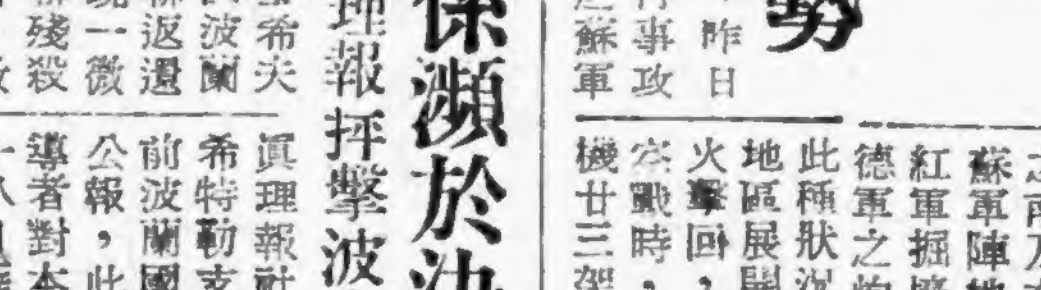 勢
昨日
事攻
蘇軍
蘇軍陣地
紅軍掘
德軍之
此種狀況
地區展開
火擊回，
空戰時，
機廿三架
係瀕於決
理報抨擊波
希夫
波蘭
返還
一微
殘殺
眞理報社
希特勒支
前波蘭國
公報，此
導者對本